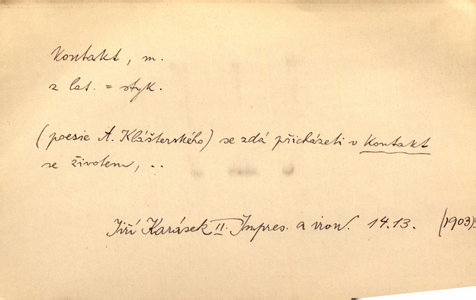 Kontakt, m.
z lat. = styk.
(poesie A. Klášterského) se zdá přicházeti v Kontakt
se životem, ..
Jiří Karásek II. Impres. a iron. 14.13. (1903).